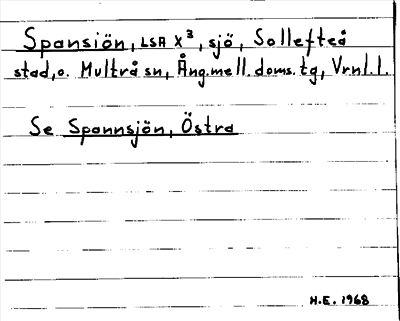 Spansiön, LSA X³, sjö, Sollefteå
stad, o. Multrå sn, Ång.mell.doms.tg, Vrnl.l.
Se Spannsjön, Östra
H.E. 1968